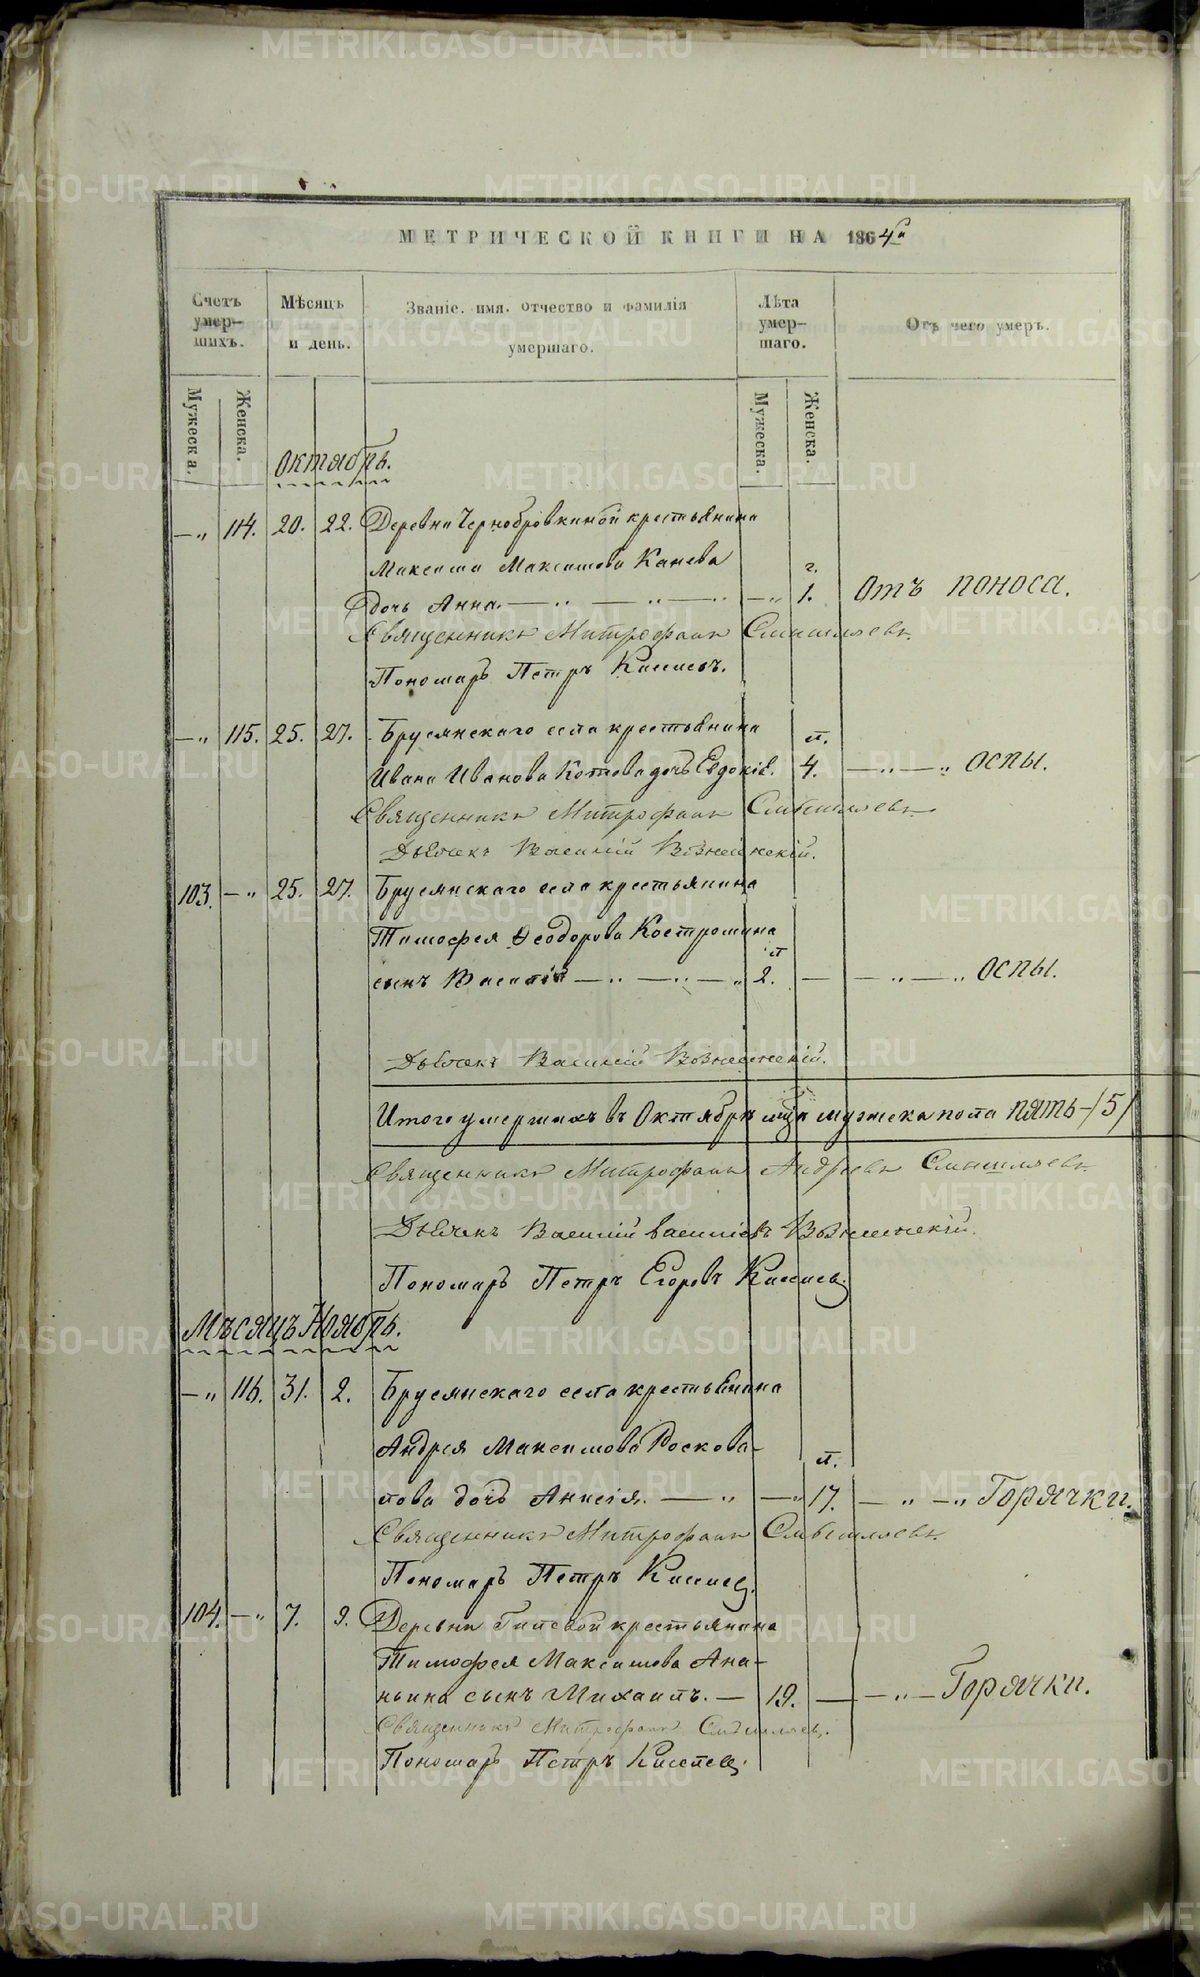 МЕТРИЧЕСКОЙ КНИГИ НА 1864й
Счетъ умер-шихъ.
Мѣсяцъ и день.
Званіе. имя. отчество и фамилія умершаго.
Лѣта умер-шаго.
Отъ чего умеръ.
Мужеска.
Женска.
Мужеска.
Женска.
Октябрь.
—„ 114. 20. 22. Деревни Чернобровкиной крестьянина
Максима Максимова Канева г.
дочь Анна. — „ — „ — „ — „ 1. Отъ поноса.
Священникъ Митрофанъ Смышляевъ.
Пономарь Петръ Киселевъ.
—„ 115. 25. 27. Бруснянскаго села крестьянина л.
Ивана Иванова Котова дочь Евдокія. 4. — „ — „ Оспы.
Священникъ Митрофанъ Смышляевъ
Дьячекъ Василій Вознесенскій.
103. —„ 25. 27. Бруснянскаго села крестьянина
Тимофея Ѳеодорова Костромина л
сынъ Василій — „ — „ — „ 2. — — „ — „ Оспы.
Дьячекъ Василій Вознесенскій.
Итого умершихъ въ Октябрѣ мцѣ мужеска пола пять-/5/
Священникъ Митрофанъ Андреевъ Смышляевъ
Дьячекъ Василій Васильевъ Вознесенскій.
Пономарь Петръ Егоровъ Киселев.
Мѣсяцъ Ноябрь.
—„ 116. 31. 2. Бруснянскаго села крестьянина
Андрея Максимова Роскова-
лова дочь Анисія. — „ — „ л. 17. — „ — „ Горячки.
Священникъ Митрофанъ Смышляевъ.
Пономарь Петръ Киселев.
104. —„ 7. 9. Деревни крестьянина
Тимофея Максимова Ана-
ньина сынъ Михаилъ. — 19. — — „ — Горячки.
Священникъ Митрофанъ Смышляев.
Пономарь Петръ Киселев.
METRIKI.GASO-URAL.RU